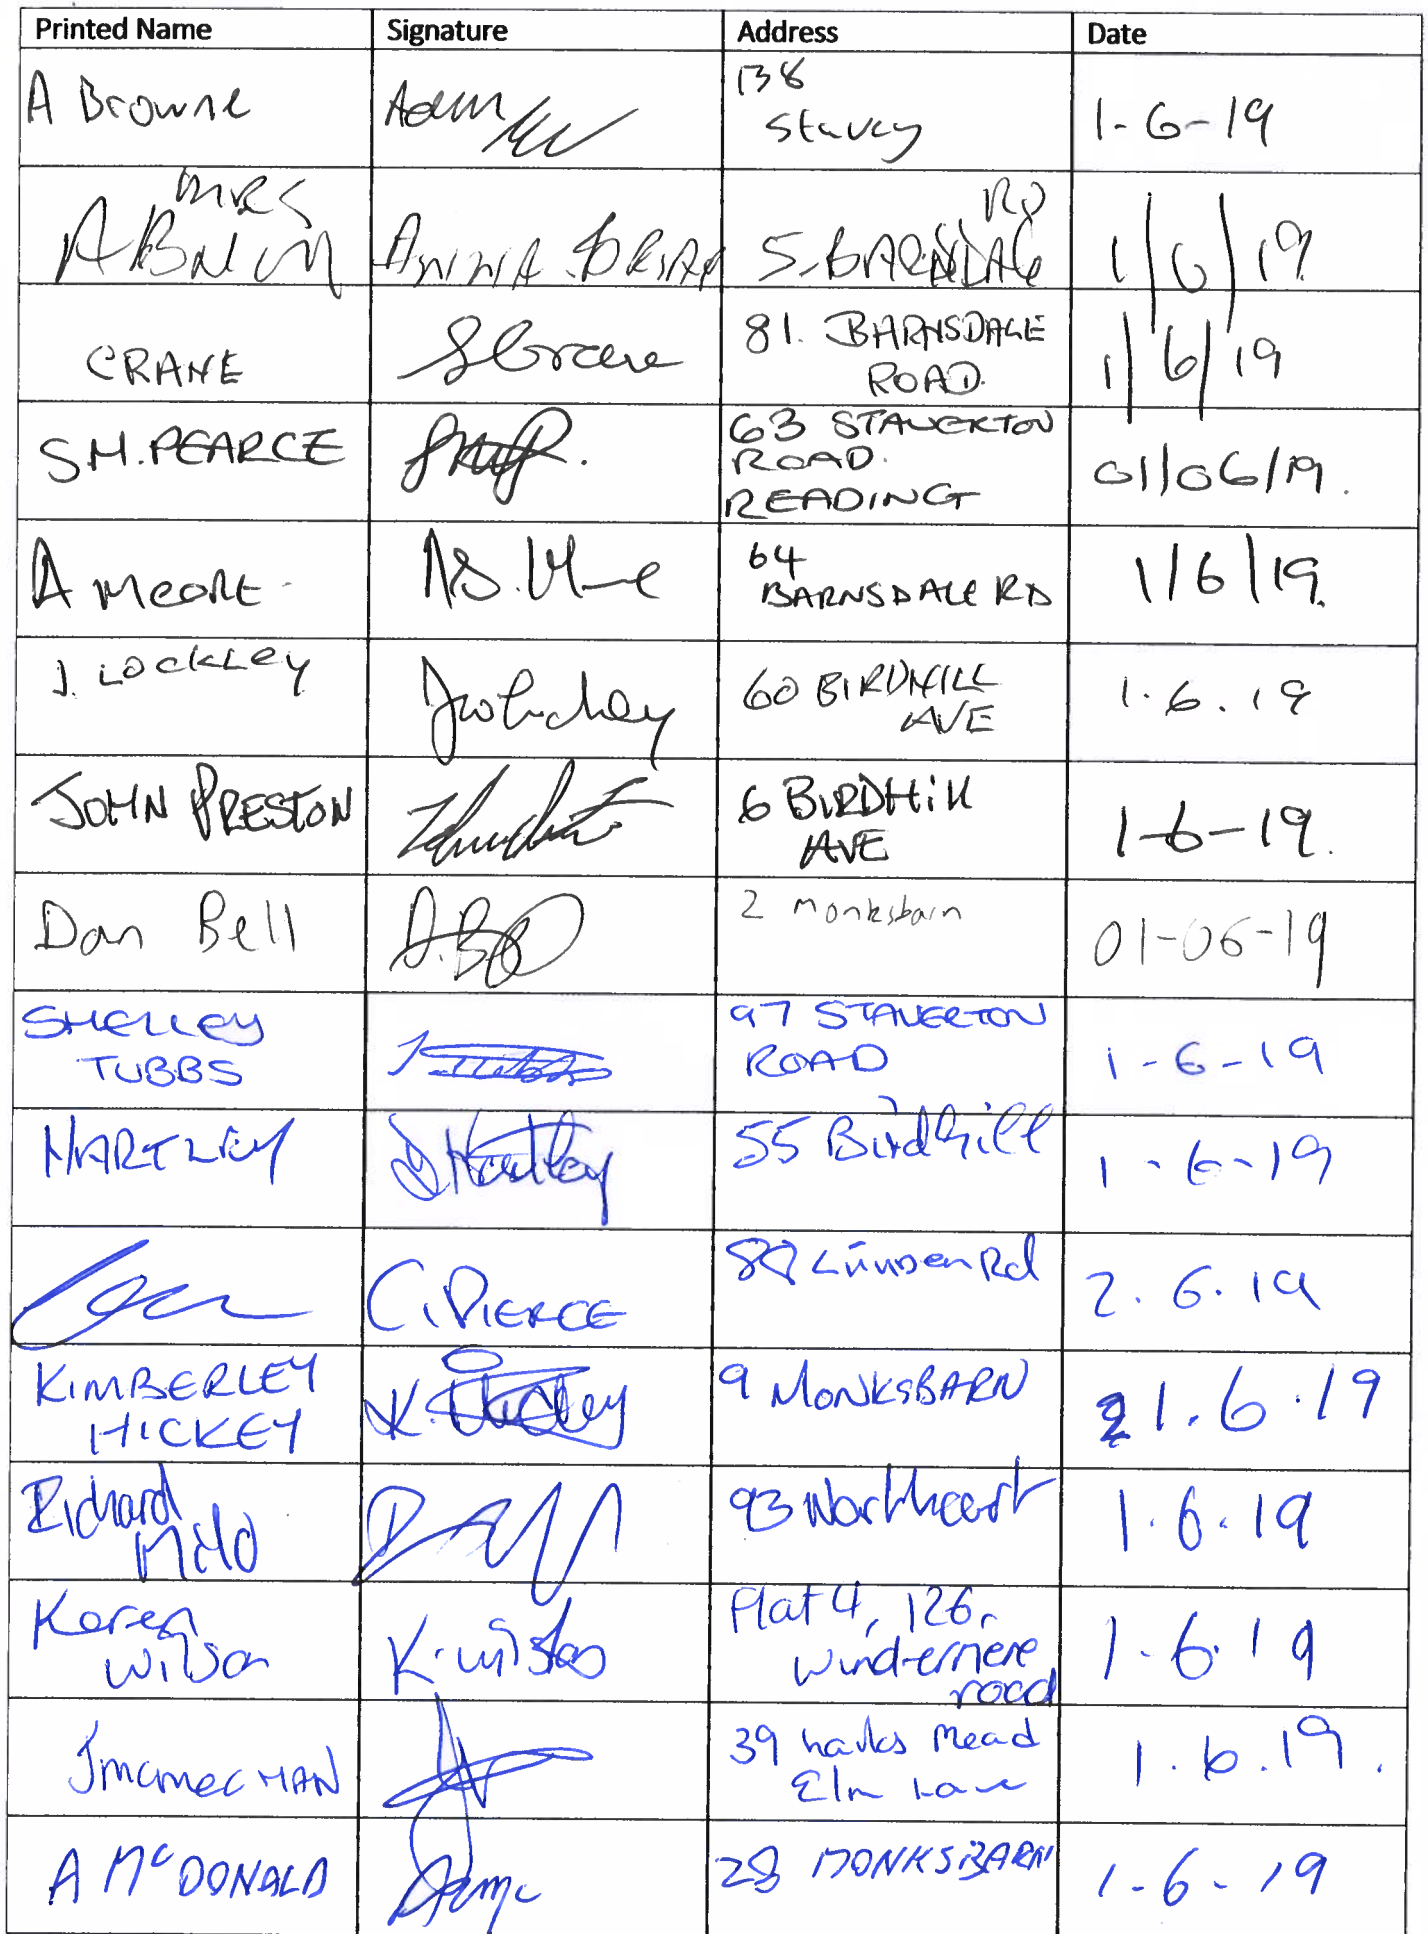 Printed Name Signature Address Date
A Browne Adam 138
1-6-19
MRS RD
5. 1/6/19
CRANE S Crane 81. BARNSDALE
ROAD. 1/6/19
S.H. PEARCE 63 STAVERTON
ROAD.
READING 01/06/19.
A Moore 64
BARNSDALE RD 1/6/19.
J. LOCKLEY 60 BIRDHILL
AVE 1.6.19
JOHN PRESTON 6 BIRDHill
AVE 1-6-19.
Dan Bell 2 Monksbarn 01-06-19
SHELLEY
TUBBS 97 STAVERTON
ROAD 1-6-19
HARTLEY J Hartley 55 Birdhill 1-6-19
C. PIERCE Rd 2.6.19
KIMBERLEY
HICKEY K. Hickey 9 MONKSBARN 1.6.19
Richard 93 1.6.19
Karen
Wilson K. Wilson Flat 4, 126,
Windermere
road 1.6.19
39 Mead
Elm Lane 1.6.19.
A McDONALD 28 MONKSBARN 1-6-19